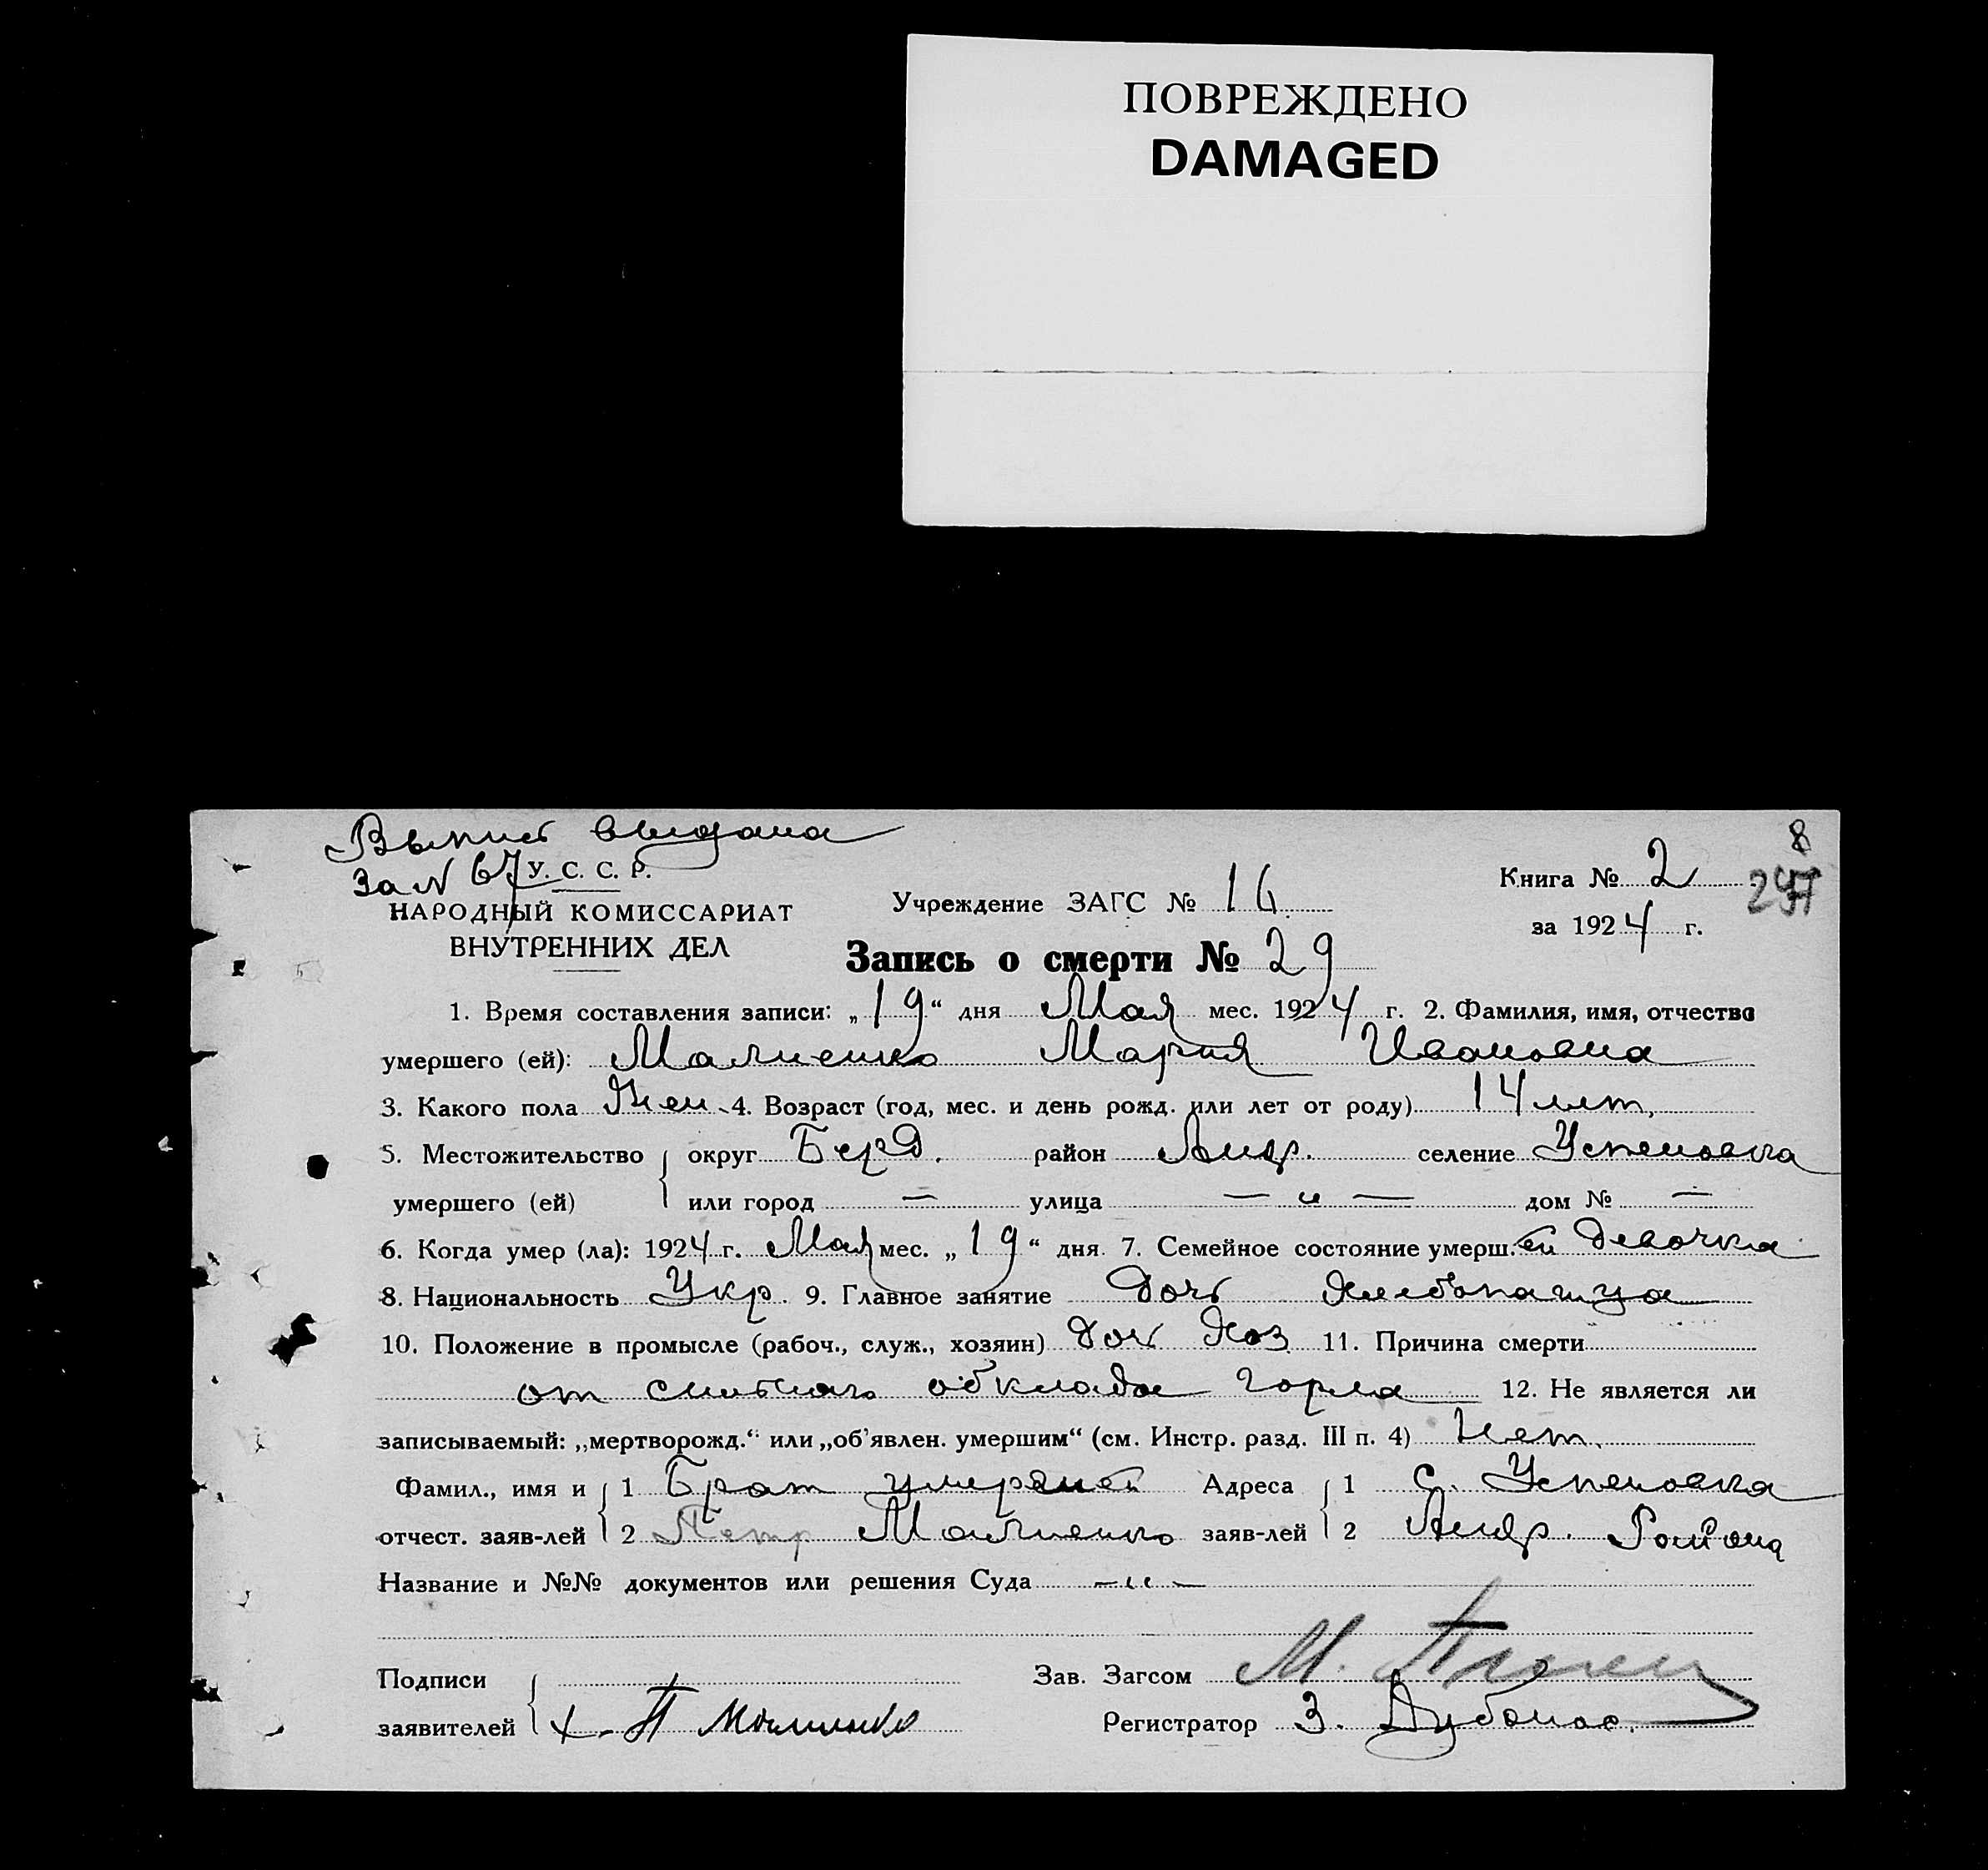 ПОВРЕЖДЕНО
DAMAGED
Выпис выдана
за № 67
У. С. С. Р.
НАРОДНЫЙ КОМИССАРИАТ
ВНУТРЕННИХ ДЕЛ
Учреждение ЗАГС № 16
Книга № 2
8
247
за 1924 г.
Запись о смерти № 29
1. Время составления записи: „19“ дня Мая мес. 1924 г. 2. Фамилия, имя, отчество
умершего (ей): Малиенко Мария Ивановна
3. Какого пола Жен. 4. Возраст (год, мес. и день рожд. или лет от роду) 14 лет.
5. Местожительство округ Берд. район Андр. селение Успеновка
умершего (ей) или город — улица — „ — дом № —
6. Когда умер (ла): 1924 г. Мая мес. „19“ дня. 7. Семейное состояние умерш.ей девочка
8. Национальность Укр. 9. Главное занятие дочь хлебопашца
10. Положение в промысле (рабоч., служ., хозяин) доч Хоз 11. Причина смерти
от обклада горла 12. Не является ли
записываемый: „мертворожд.“ или „об’явлен. умершим“ (см. Инстр. разд. III п. 4) Нет.
Фамил., имя и 1 Брат умершей Адреса 1 с. Успеновка
отчест. заяв-лей 2 Петр Малиенко заяв-лей 2 Андр. Района
Название и №№ документов или решения Суда — „ —
Подписи Зав. Загсом М.
заявителей х. П Малиенко Регистратор З.